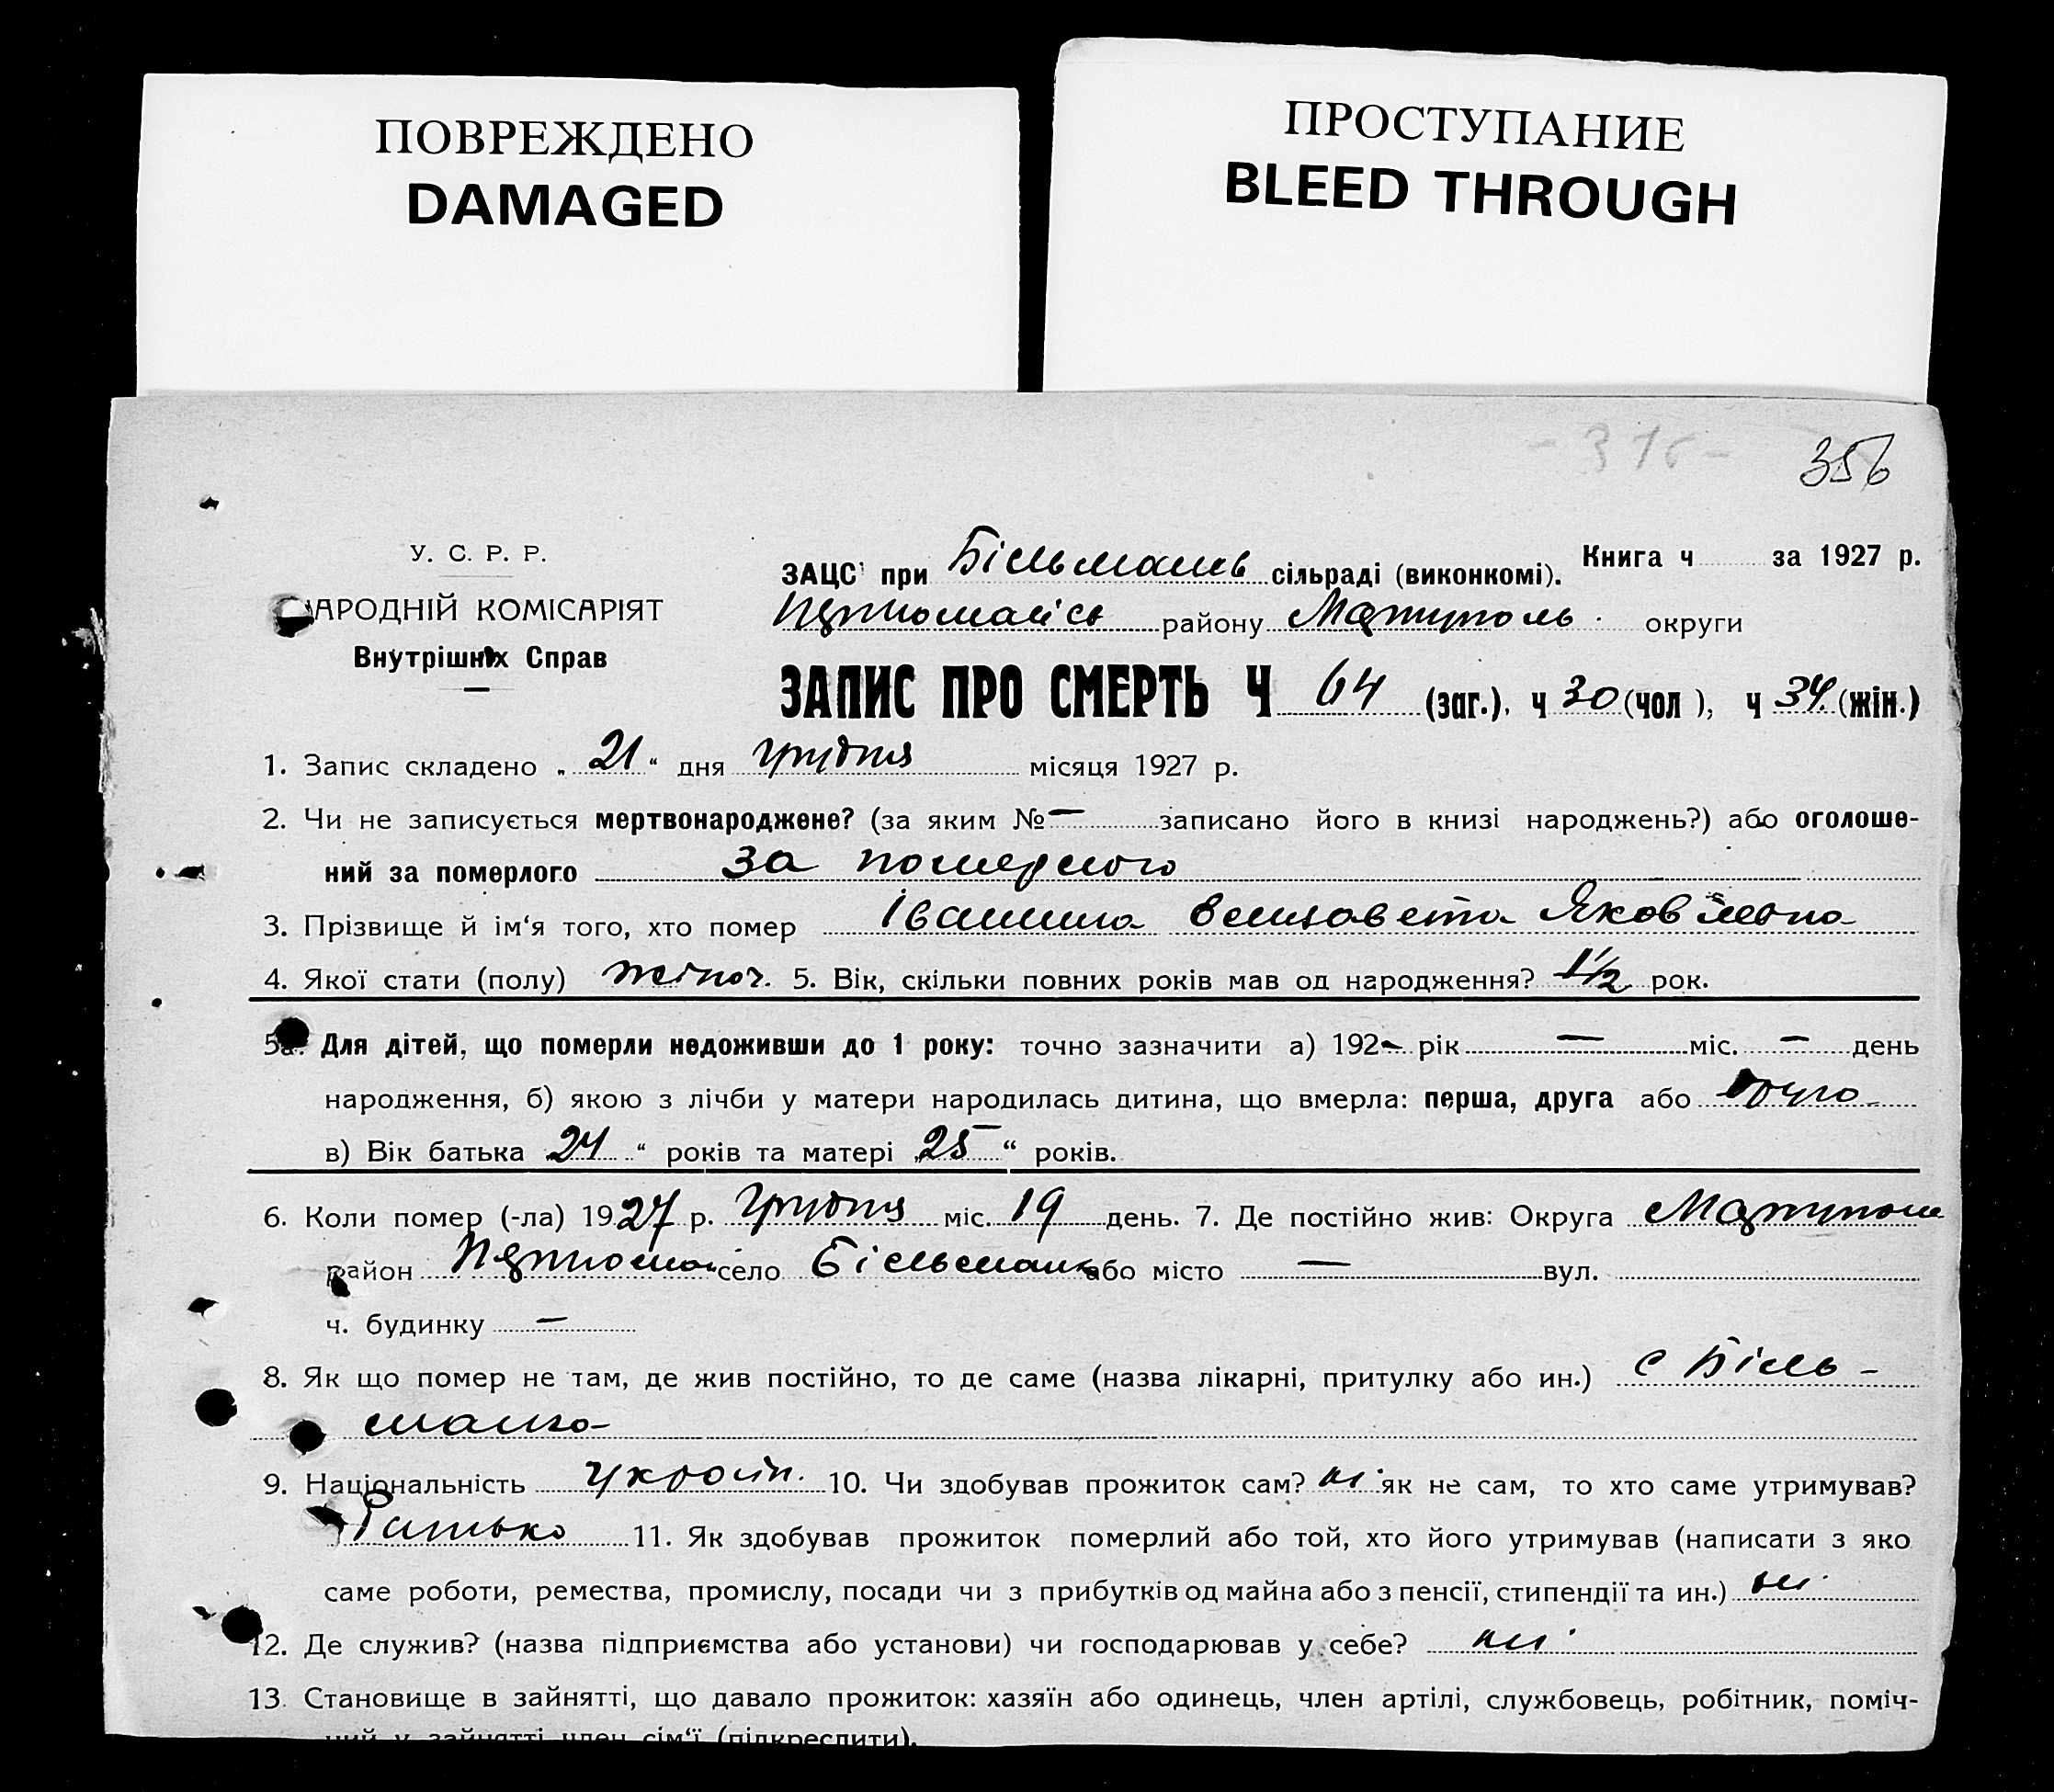 ПОВРЕЖДЕНО
DAMAGED
ПРОСТУПАНИЕ
BLEED THROUGH
356
У. С. Р. Р.
НАРОДНІЙ КОМІСАРІЯТ
Внутрішніх Справ
Книга ч за 1927 р.
ЗАЦС при Більманв сільраді (виконкомі).
району Маріуполь. округи
ЗАПИС ПРО СМЕРТЬ Ч 64 (заг.), ч 30 (чол), ч 34 (жін.)
1. Запис складено „21“ дня грудня місяця 1927 р.
2. Чи не записується мертвонароджене? (за яким № — записано його в книзі народжень?) або оголоше-
ний за померлого за померлого
3. Прізвище й ім‘я того, хто помер Іванина Єлизавета Яковлівна
4. Якої стати (полу) жіноч. 5. Вік, скільки повних років мав од народження? 1½ рок.
5а. Для дітей, що померли недоживши до 1 року: точно зазначити а) 192- рік — міс. — день
народження, б) якою з лічби у матери народилась дитина, що вмерла: перша, друга або друга
в) Вік батька „24“ років та матері „25“ років.
6. Коли помер (-ла) 1927 р. Грудня міс. 19 день. 7. Де постійно жив: Округа Маріупол
район село Більманка або місто — вул.
ч. будинку —
8. Як що помер не там, де жив постійно, то де саме (назва лікарні, притулку або ин.) с Біль-
манка
9. Національність Україн. 10. Чи здобував прожиток сам? ні як не сам, то хто саме утримував?
Батько 11. Як здобував прожиток померлий або той, хто його утримував (написати з яко
саме роботи, ремества, промислу, посади чи з прибутків од майна або з пенсії, стипендії та ин.) ні
12. Де служив? (назва підприємства або установи) чи господарював у себе? ні
13. Становище в зайнятті, що давало прожиток: хазяїн або одинець, член артілі, службовець, робітник, поміч-
ний у зайнятті член сім‘ї (підкреслити).